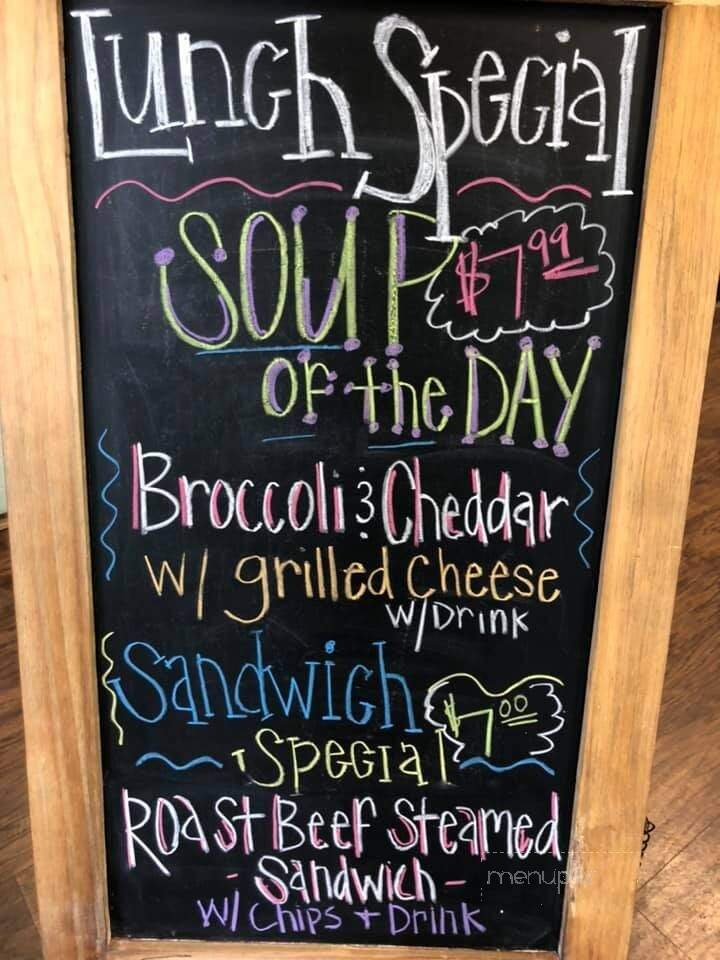 Lunch Special
SOUP $7.99
OF the DAY
Broccoli & Cheddar
w/ grilled Cheese
w/Drink
Sandwich $7.00
Special
Roast Beef Steamed
- Sandwich -
w/ Chips + Drink